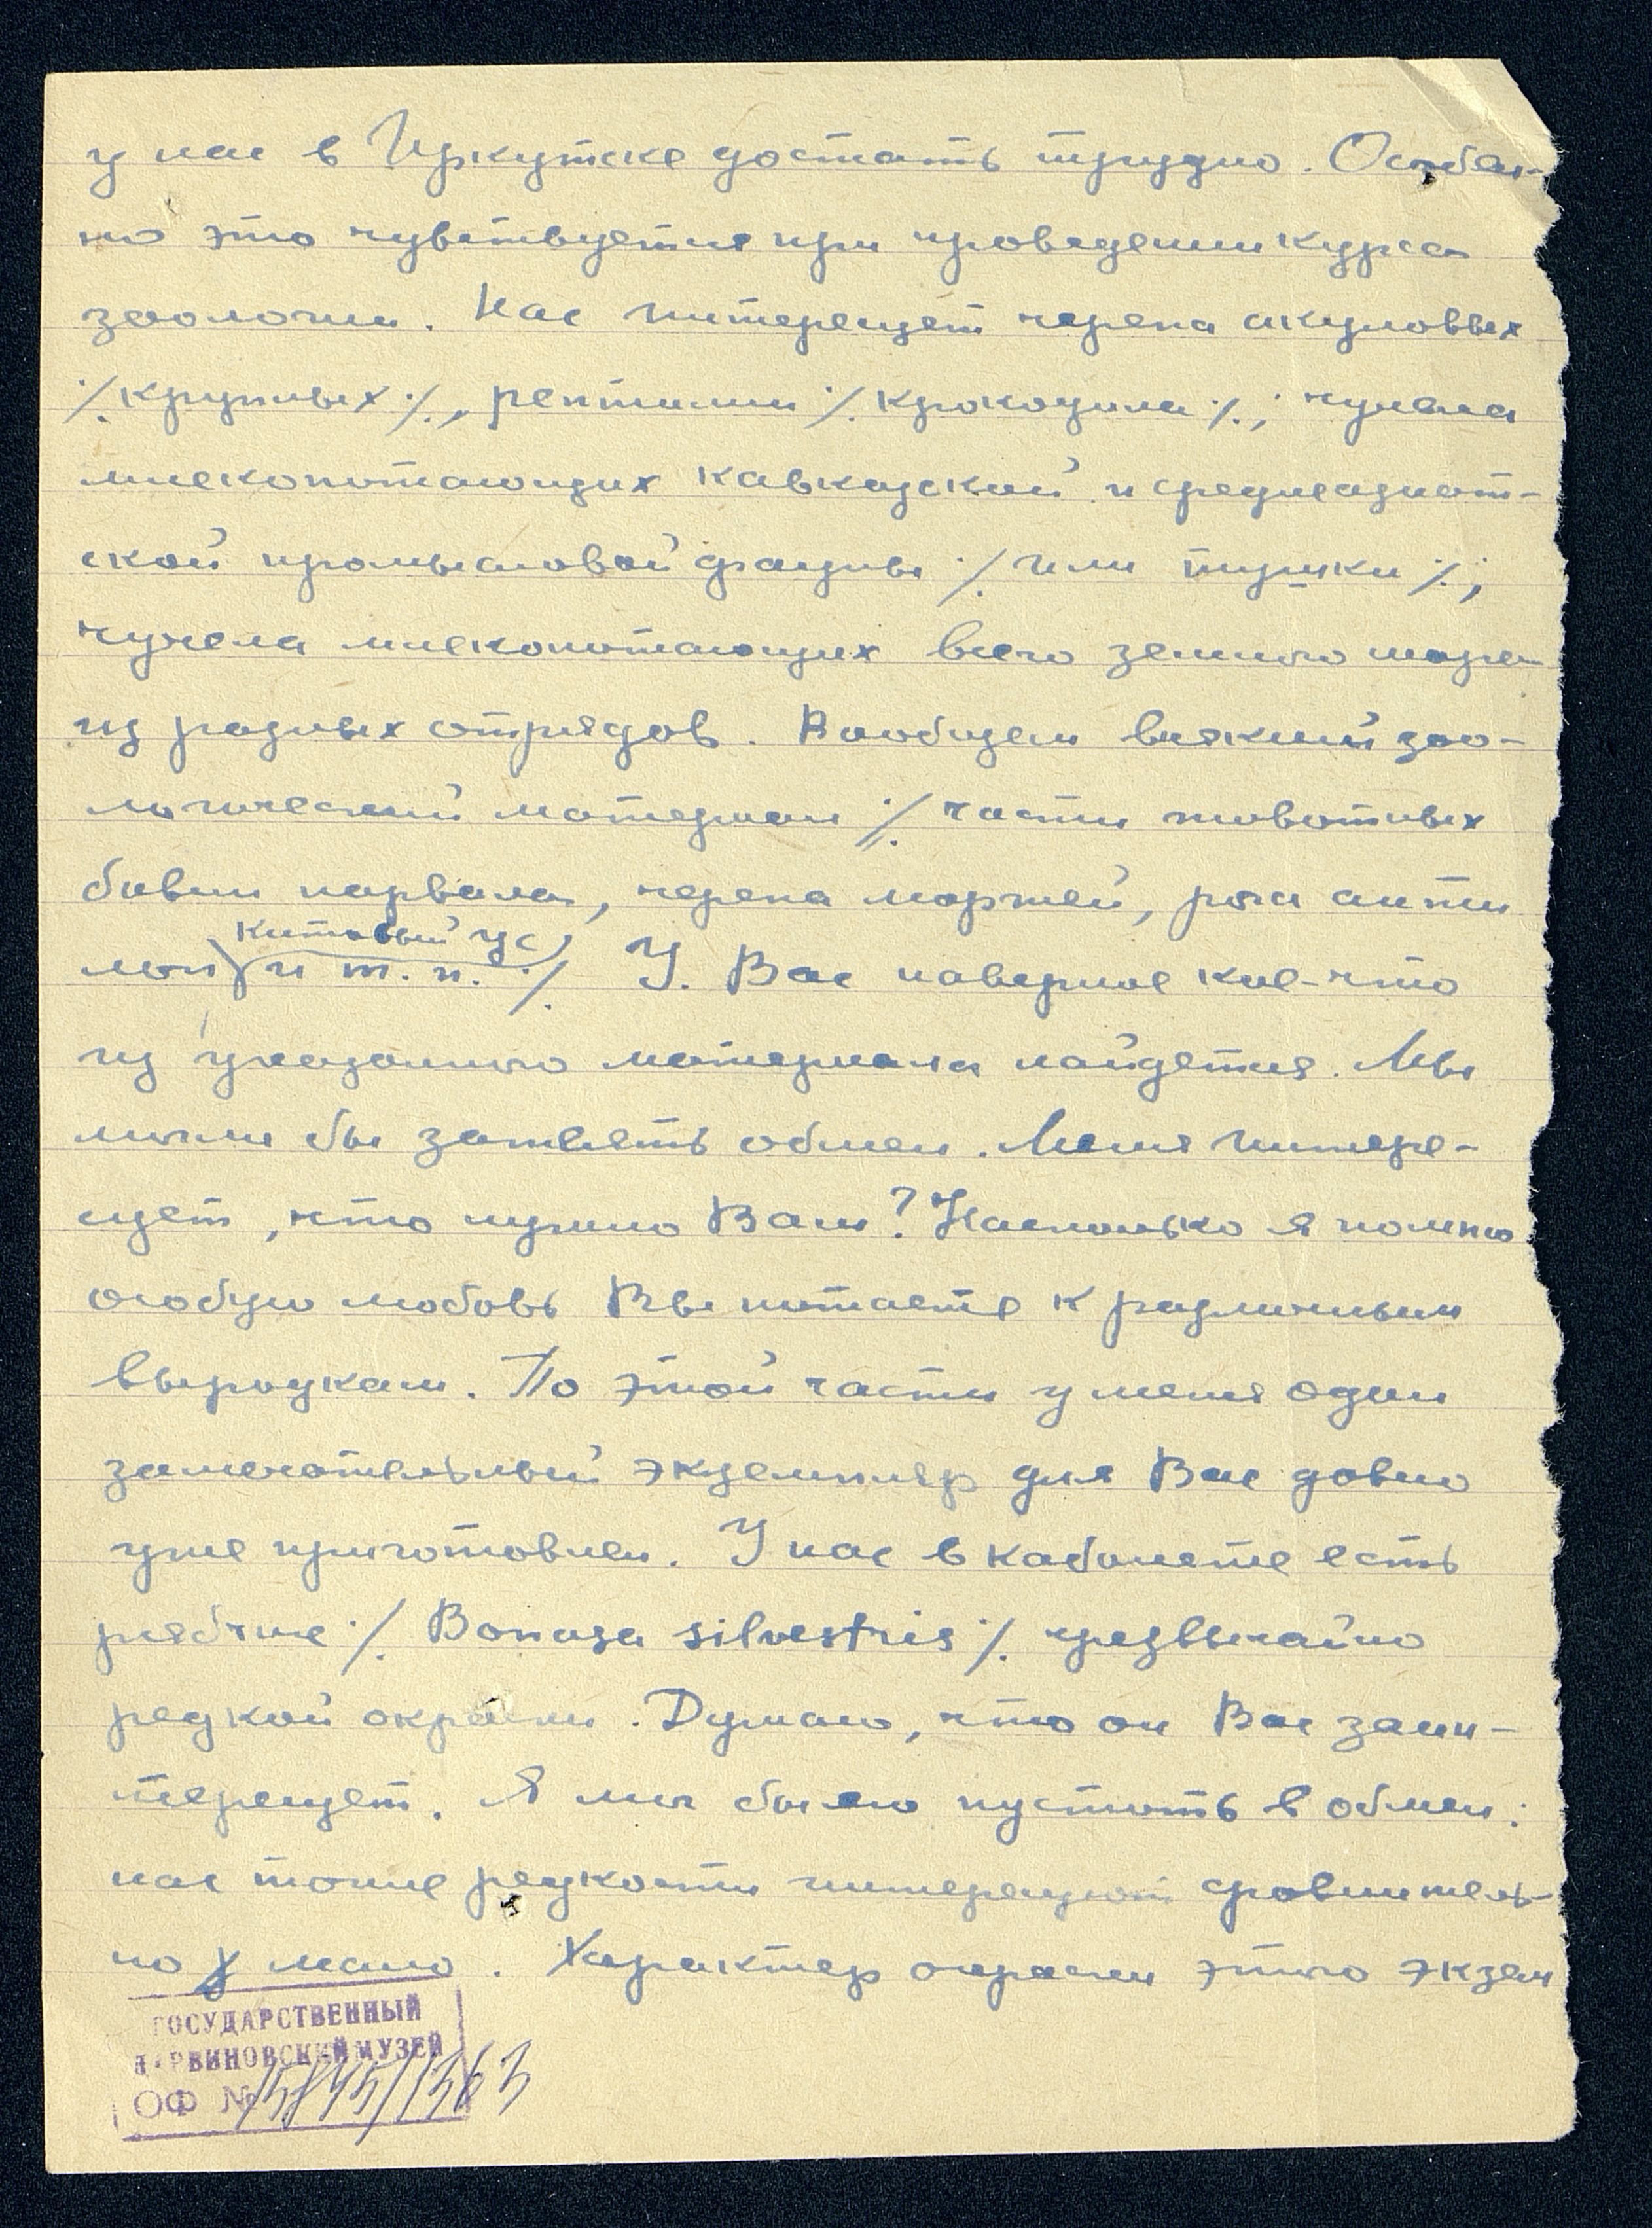 у нас в Иркутске достать трудно. Особен-
но это чувствуется при проведении курса
зоологии. Нас интересует черепа акуловых
./. крупных ./., рептилии ./. крокодила ./.; чучела
млекопитающих кавказской и среднеазиат-
ской промысловой фауны ./. или тушки ./.;
чучела млекопитающих всего земного шара
из разных отрядов. Вообщем всякий зоо-
логический материал ./. части животных
бивни нарвала, черепа моржей, рога анти
китовый ус
лоп и т.п. ./. У Вас наверное кое-что
из указанного материала найдется. Мы
могли бы затеять обмен. Меня интере-
сует, что нужно Вам? Насколько я помню
особую любовь Вы питаете к различным
выродкам. По этой части у меня один
замечательный экземпляр для Вас давно
уже приготовлен. У нас в кабинете есть
рябчик ./. Bonasa silvestris ./. чрезвычайно
редкой окраски. Думаю, что он Вас заин-
тересует. Я мог бы его пустить в обмен:
нас такие редкости интересуют сравнитель-
но мало. Характер окраски этого экзем
ГОСУДАРСТВЕННЫЙ
ДАРВИНОВСКИЙ МУЗЕЙ
ОФ №